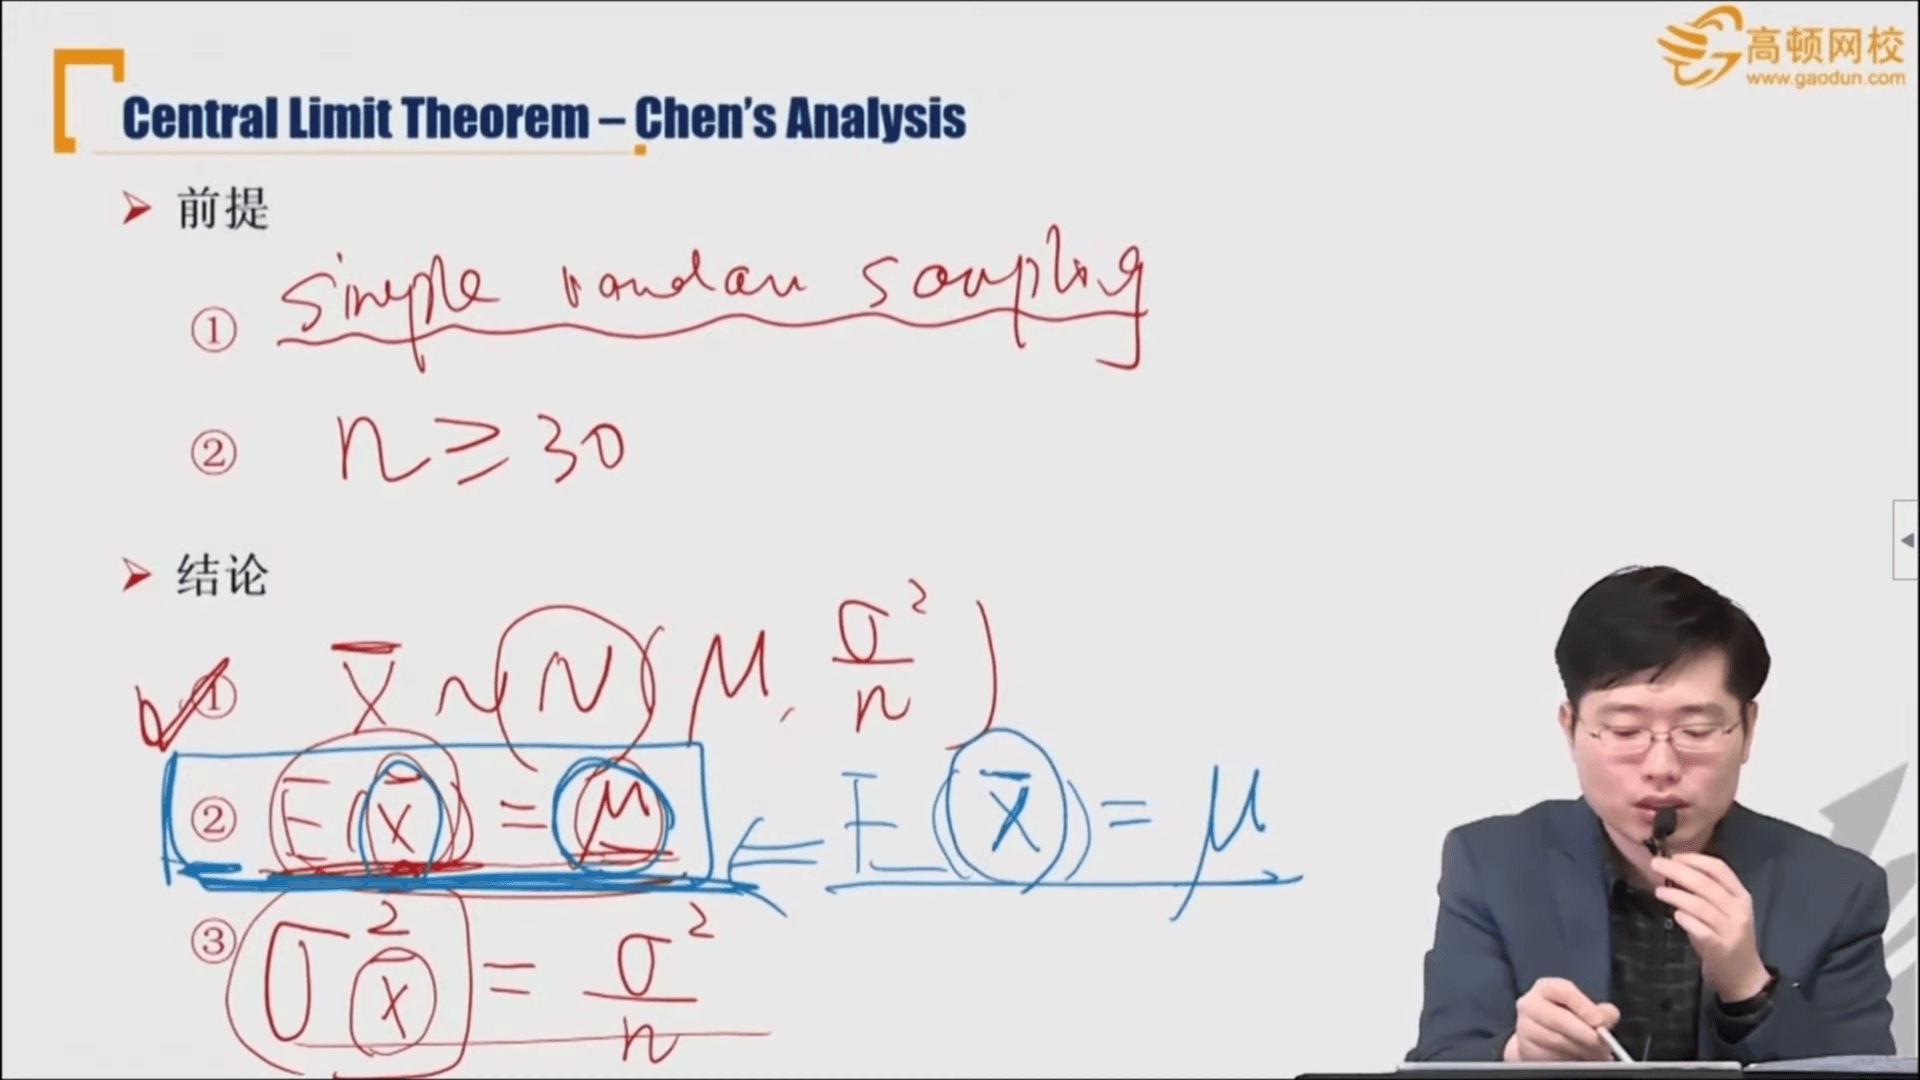 高顿网校
www.gaodun.com
Central Limit Theorem – Chen's Analysis
前提
① simple random sampling
② n ≥ 30
结论
① X̄ ~ N(μ, σ²/n)
② E(X̄) = μ ⇐ E(X̄) = μ
③ σ²X̄ = σ²/n